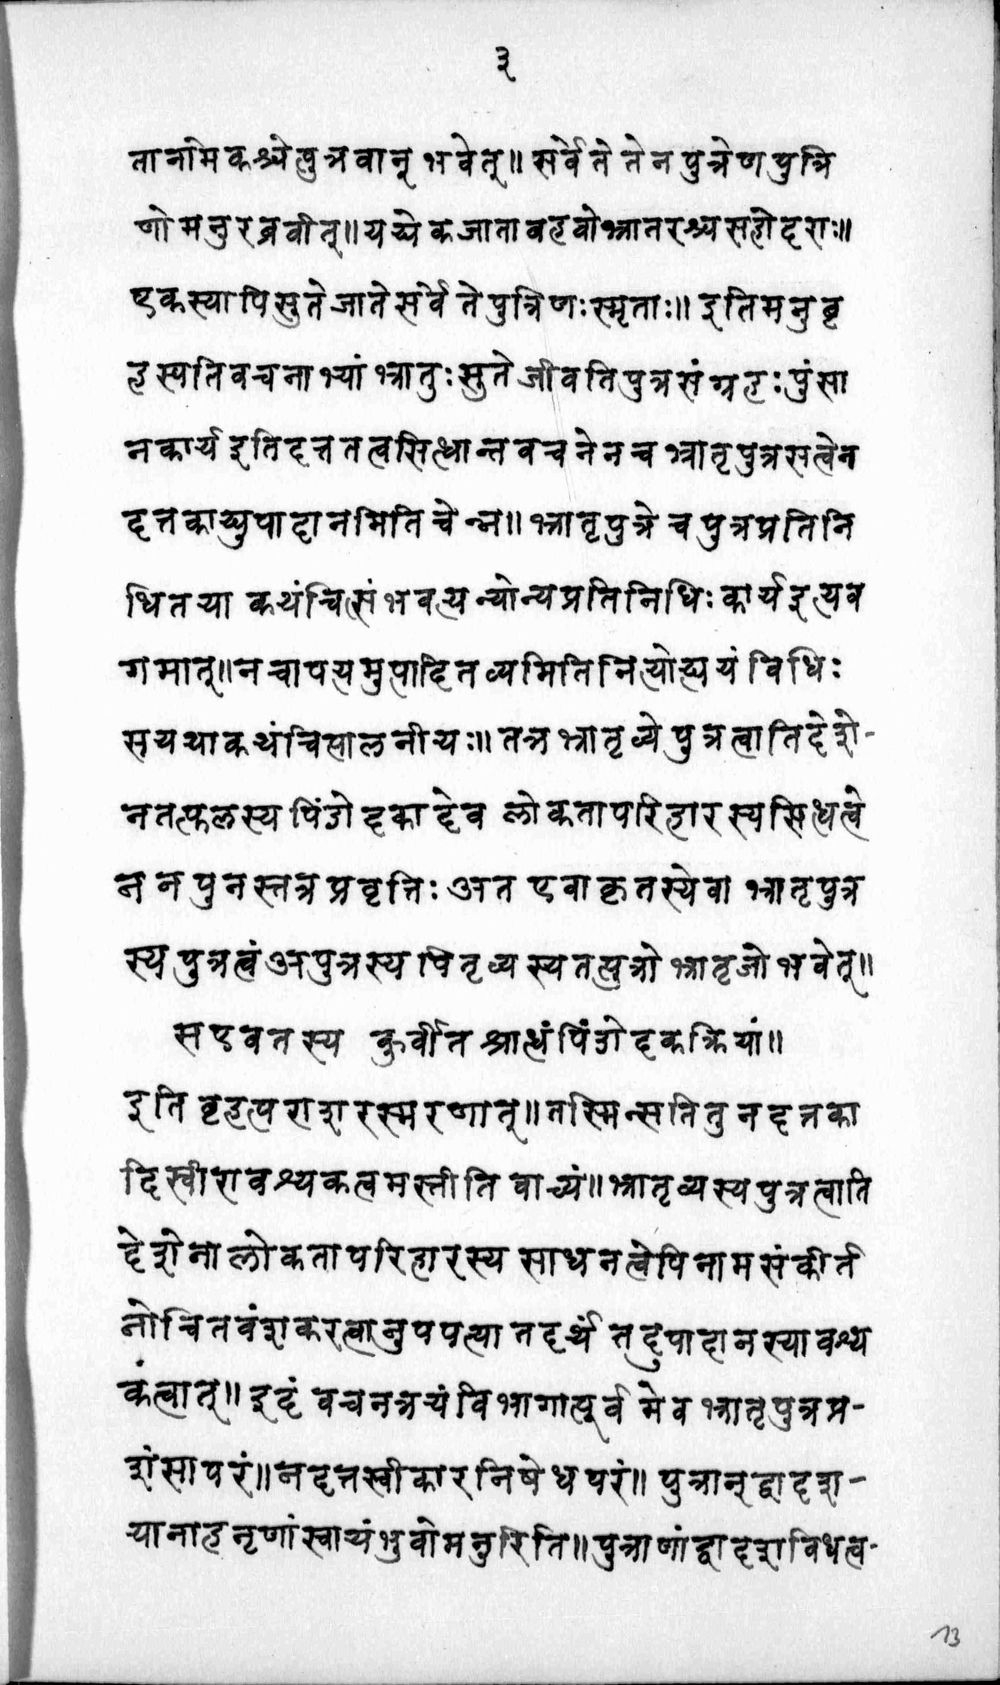 ३
तानामेकश्चेत्पुत्रवान् भवेत्॥ सर्वे ते तेन पुत्रेण पुत्रि
णो मनुरब्रवीत्॥ यद्येकजाता बहवो भ्रातरश्च सहोदराः॥
एकस्यापि सुते जाते सर्वे ते पुत्रिणः स्मृताः॥ इति मनुबृ
हस्पतिवचनाभ्यां भ्रातुः सुते जीवति पुत्रसंग्रहः पुंसा
न कार्य इति दत्ततत्वसिध्धान्तवचनेन च भ्रातृपुत्रसत्वेन
दत्तकाद्युपादानमिति चेन्न॥ भ्रातृपुत्रे च पुत्रप्रतिनि
धितया कथंचित्संभवत्यन्योन्यप्रतिनिधिः कार्य इत्यव
गमात्॥ न चापत्यमुत्पादितव्यमिति नित्योह्ययं विधिः
स यथाकथंचित्पालनीयः॥ तत्र भ्रातृव्ये पुत्रत्वातिदेशे-
न तत्फलस्य पिंडोदकादेव लोकतापरिहारस्य सिध्धत्वे
न न पुनस्तत्र प्रवृत्तिः अत एवाकृतस्येवा भ्रातृपुत्र
स्य पुत्रत्वं अपुत्रस्य पितृव्यस्य तत्पुत्रो भ्रातृजो भवेत्॥
स एव तस्य कुर्वीत श्राध्धं पिंडोदकक्रियां॥
इति बृहत्पराशरस्मरणात्॥ तस्मिन्सति तु न दत्तका
दिस्वीरावश्यकत्वमस्तीति वाच्यं॥ भ्रातृव्यस्य पुत्रत्वाति
देशेनालोकतापरिहारस्य साधनत्वेपि नामसंकीर्त
नोचितवंशकरत्वानुपपत्या तदर्थं तदुपादानस्यावश्य
कंत्वात्॥ इदं वचनत्रयं विभागात्पूर्वमेव भ्रातृपुत्रप्र-
शंसापरं॥ न दत्तस्वीकारनिषेधपरं॥ पुत्रान् द्वादश-
यानाह नृणां स्वायंभुवो मनुरिति॥ पुत्राणां द्वादशविधत्व-
13